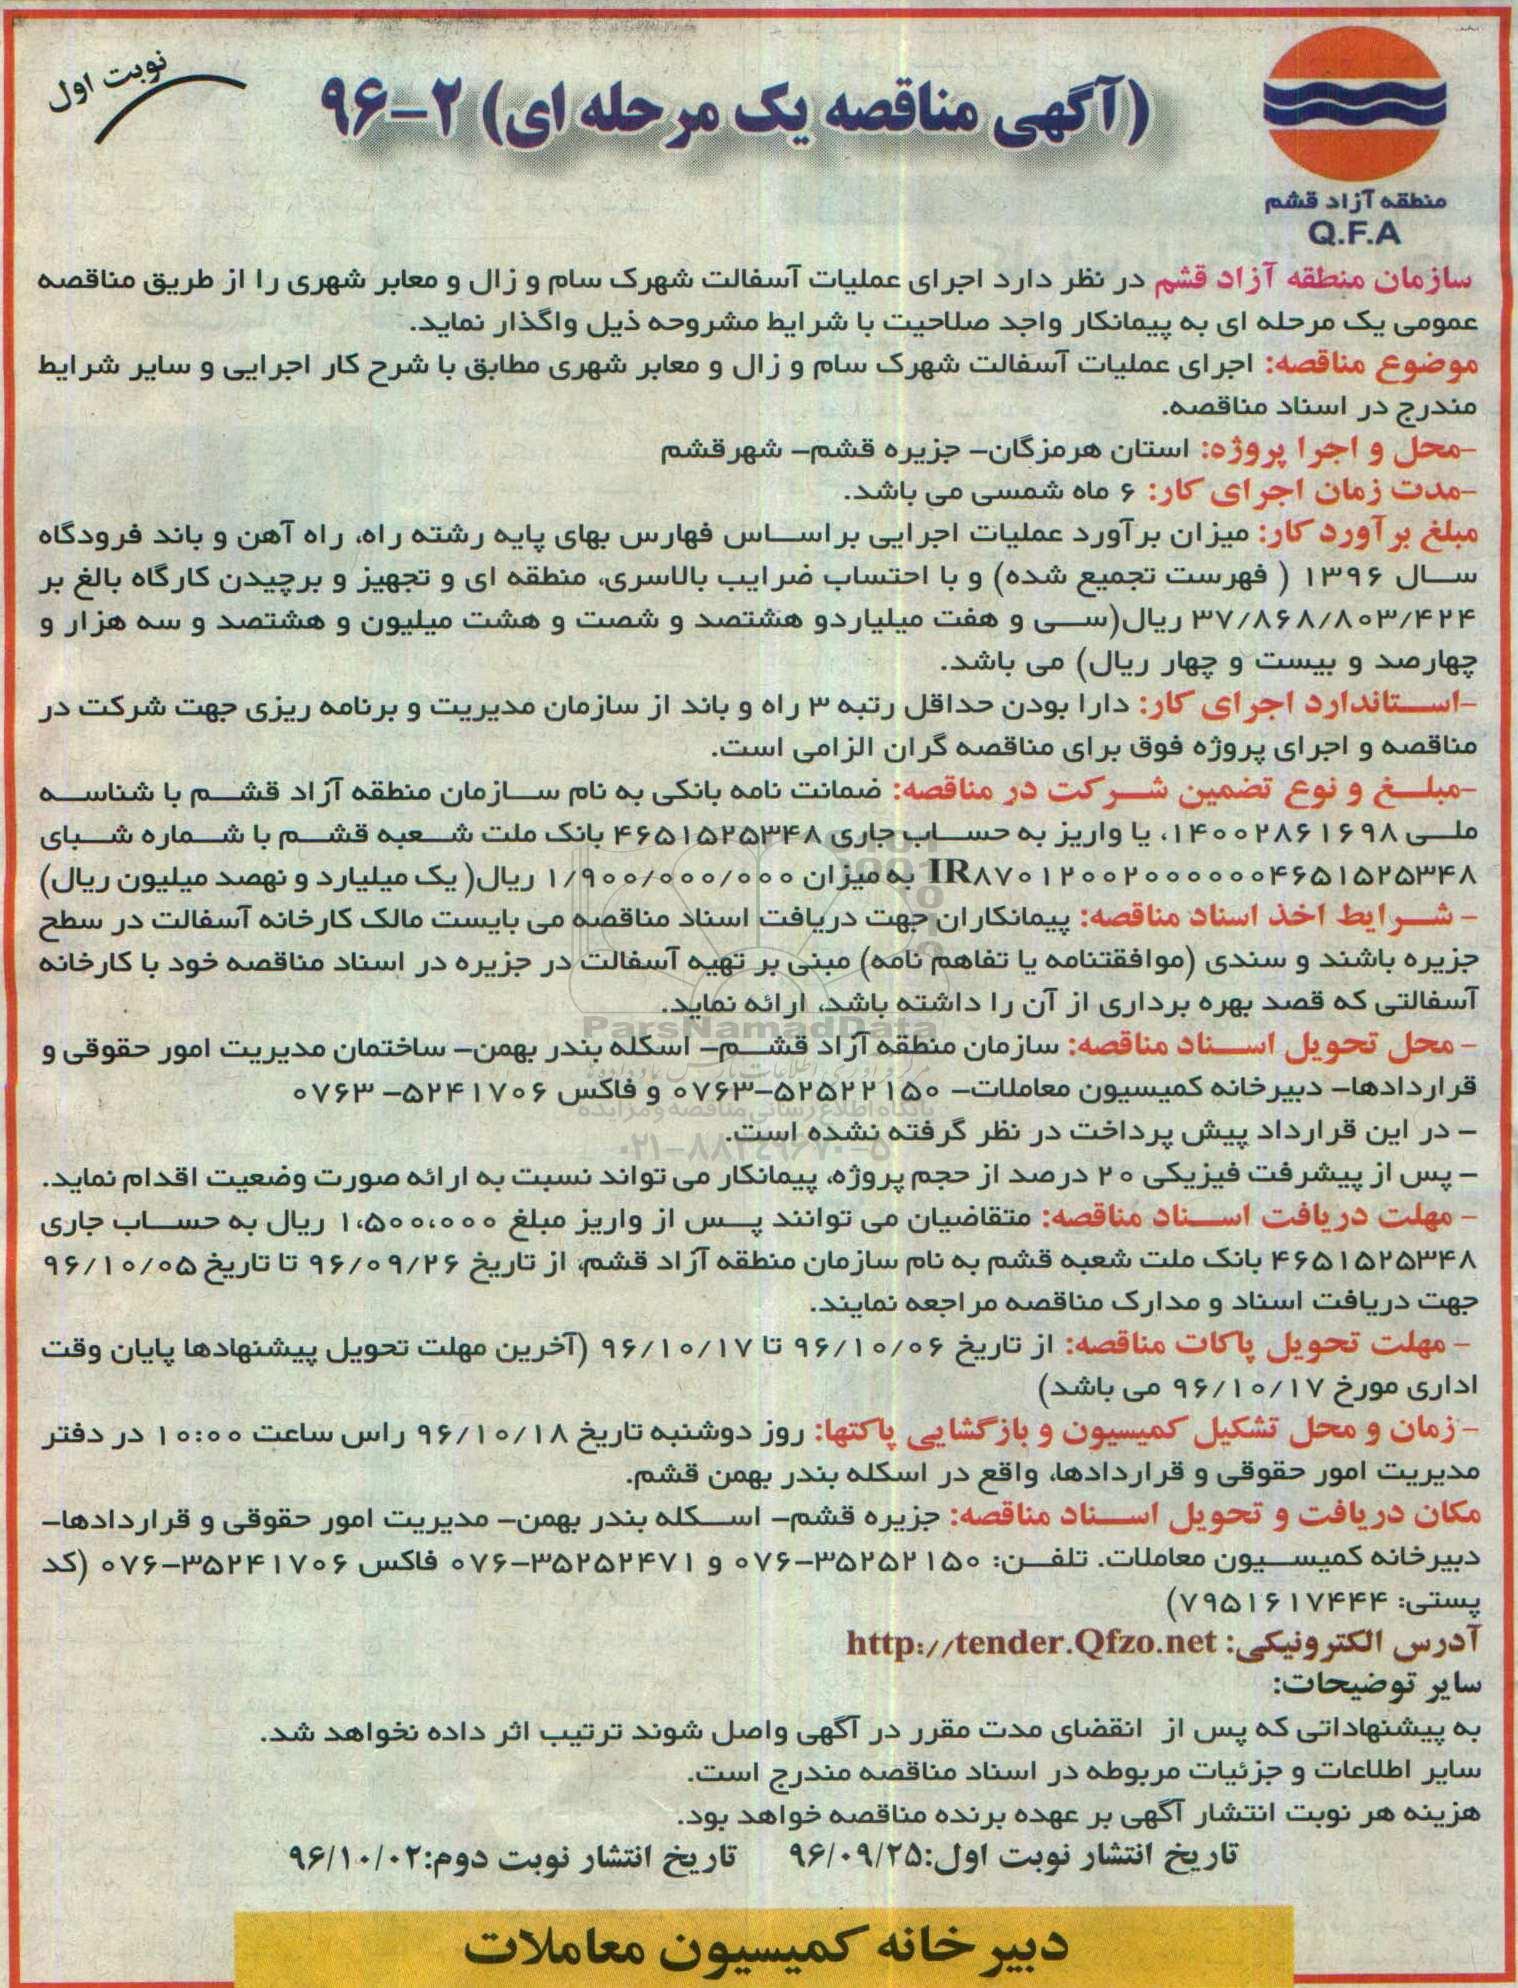 نوبت اول
(آگهی مناقصه یک مرحله ای) ۲-۹۶
منطقه آزاد قشم
Q.F.A
سازمان منطقه آزاد قشم در نظر دارد اجرای عملیات آسفالت شهرک سام و زال و معابر شهری را از طریق مناقصه
عمومی یک مرحله ای به پیمانکار واجد صلاحیت با شرایط مشروحه ذیل واگذار نماید.
موضوع مناقصه: اجرای عملیات آسفالت شهرک سام و زال و معابر شهری مطابق با شرح کار اجرایی و سایر شرایط
مندرج در اسناد مناقصه.
-محل و اجرا پروژه: استان هرمزگان- جزیره قشم- شهرقشم
-مدت زمان اجرای کار: ۶ ماه شمسی می باشد.
مبلغ برآورد کار: میزان برآورد عملیات اجرایی براساس فهارس بهای پایه رشته راه، راه آهن و باند فرودگاه
سال ۱۳۹۶ ( فهرست تجمیع شده) و با احتساب ضرایب بالاسری، منطقه ای و تجهیز و برچیدن کارگاه بالغ بر
۳۷/۸۶۸/۸۰۳/۴۲۴ ریال(سی و هفت میلیاردو هشتصد و شصت و هشت میلیون و هشتصد و سه هزار و
چهارصد و بیست و چهار ریال) می باشد.
-استاندارد اجرای کار: دارا بودن حداقل رتبه ۳ راه و باند از سازمان مدیریت و برنامه ریزی جهت شرکت در
مناقصه و اجرای پروژه فوق برای مناقصه گران الزامی است.
-مبلغ و نوع تضمین شرکت در مناقصه: ضمانت نامه بانکی به نام سازمان منطقه آزاد قشم با شناسه
ملی ۱۴۰۰۲۸۶۱۶۹۸، یا واریز به حساب جاری ۴۶۵۱۵۲۵۳۴۸ بانک ملت شعبه قشم با شماره شبای
IR۸۷۰۱۲۰۰۲۰۰۰۰۰۰۴۶۵۱۵۲۵۳۴۸ به میزان ۱/۹۰۰/۰۰۰/۰۰۰ ریال( یک میلیارد و نهصد میلیون ریال)
- شرایط اخذ اسناد مناقصه: پیمانکاران جهت دریافت اسناد مناقصه می بایست مالک کارخانه آسفالت در سطح
جزیره باشند و سندی (موافقتنامه یا تفاهم نامه) مبنی بر تهیه آسفالت در جزیره در اسناد مناقصه خود با کارخانه
آسفالتی که قصد بهره برداری از آن را داشته باشد، ارائه نماید.
ParsNamadData
- محل تحویل اسناد مناقصه: سازمان منطقه آزاد قشم- اسکله بندر بهمن- ساختمان مدیریت امور حقوقی و
قراردادها- دبیرخانه کمیسیون معاملات- ۵۲۵۲۲۱۵۰-۰۷۶۳ و فاکس ۵۲۴۱۷۰۶- ۰۷۶۳
پایگاه اطلاع رسانی مناقصه و مزایده
- در این قرارداد پیش پرداخت در نظر گرفته نشده است.
۰۲۱-۸۸۳۴۹۶۷۰-۵
- پس از پیشرفت فیزیکی ۲۰ درصد از حجم پروژه، پیمانکار می تواند نسبت به ارائه صورت وضعیت اقدام نماید.
- مهلت دریافت اسناد مناقصه: متقاضیان می توانند پس از واریز مبلغ ۱،۵۰۰،۰۰۰ ریال به حساب جاری
۴۶۵۱۵۲۵۳۴۸ بانک ملت شعبه قشم به نام سازمان منطقه آزاد قشم، از تاریخ ۹۶/۰۹/۲۶ تا تاریخ ۹۶/۱۰/۰۵
جهت دریافت اسناد و مدارک مناقصه مراجعه نمایند.
- مهلت تحویل پاکات مناقصه: از تاریخ ۹۶/۱۰/۰۶ تا ۹۶/۱۰/۱۷ (آخرین مهلت تحویل پیشنهادها پایان وقت
اداری مورخ ۹۶/۱۰/۱۷ می باشد)
- زمان و محل تشکیل کمیسیون و بازگشایی پاکتها: روز دوشنبه تاریخ ۹۶/۱۰/۱۸ راس ساعت ۱۰:۰۰ در دفتر
مدیریت امور حقوقی و قراردادها، واقع در اسکله بندر بهمن قشم.
مکان دریافت و تحویل اسناد مناقصه: جزیره قشم- اسکله بندر بهمن- مدیریت امور حقوقی و قراردادها-
دبیرخانه کمیسیون معاملات. تلفن: ۳۵۲۵۲۱۵۰-۰۷۶ و ۳۵۲۵۲۴۷۱-۰۷۶ فاکس ۳۵۲۴۱۷۰۶-۰۷۶ (کد
پستی: ۷۹۵۱۶۱۷۴۴۴)
آدرس الکترونیکی: http://tender.Qfzo.net
سایر توضیحات:
به پیشنهاداتی که پس از انقضای مدت مقرر در آگهی واصل شوند ترتیب اثر داده نخواهد شد.
سایر اطلاعات و جزئیات مربوطه در اسناد مناقصه مندرج است.
هزینه هر نوبت انتشار آگهی بر عهده برنده مناقصه خواهد بود.
تاریخ انتشار نوبت اول:۹۶/۰۹/۲۵ تاریخ انتشار نوبت دوم:۹۶/۱۰/۰۲
دبیرخانه کمیسیون معاملات